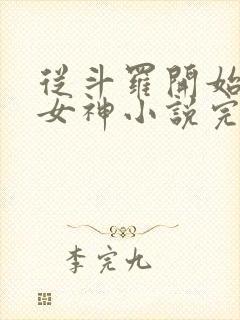 從斗羅開始
女神小說完
李完九